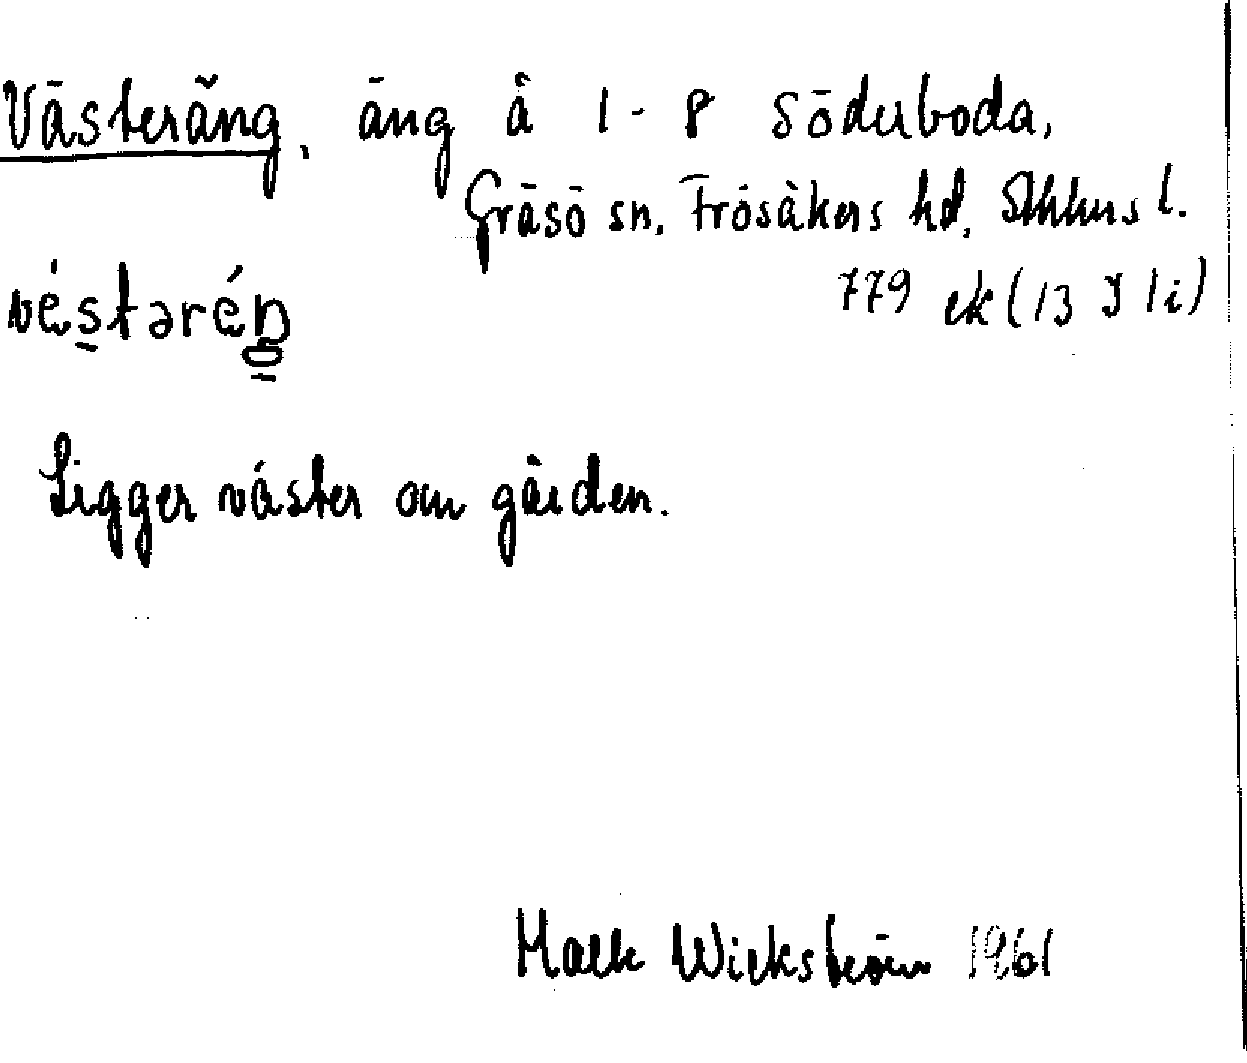 Västeräng, äng å 1-8 Söderboda,
Gräsö sn, Frösåkers hd, Sthlms l.
779 ek (13 I 1i)
véstəréŋ
Ligger väster om gården.
Wickström 1961